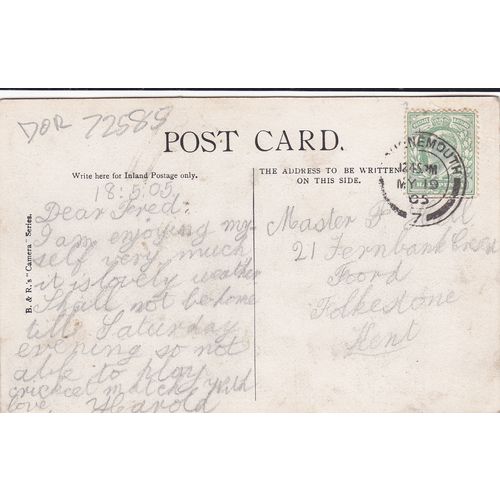 DOR 72585
POST CARD.
Write here for Inland Postage only.
THE ADDRESS TO BE WRITTEN
ON THIS SIDE.
B. & R.'s "Camera" Series.
18.5.05
Dear Fred.
I am enjoying my
self very much
it is lovely weather
Shall not be home
till Saturday
evening so not
able to play
cricket match. With
love. Harold
Master F
21 Fernbank Cres
Foord
Folkestone
Kent
BOURNEMOUTH
12.45PM
MY 19
05
7